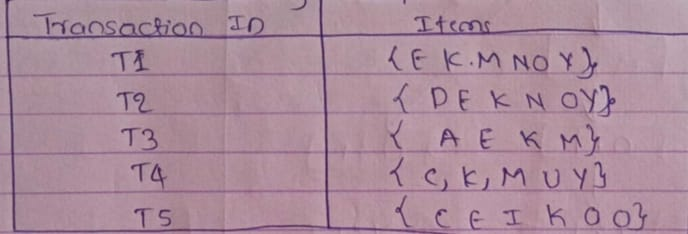 Transaction ID Items
T1 {E K.M NOY}
T2 { DE K N OY}
T3 { A E K M}
T4 { C, K, M U Y}
T5 { C E I K O O}